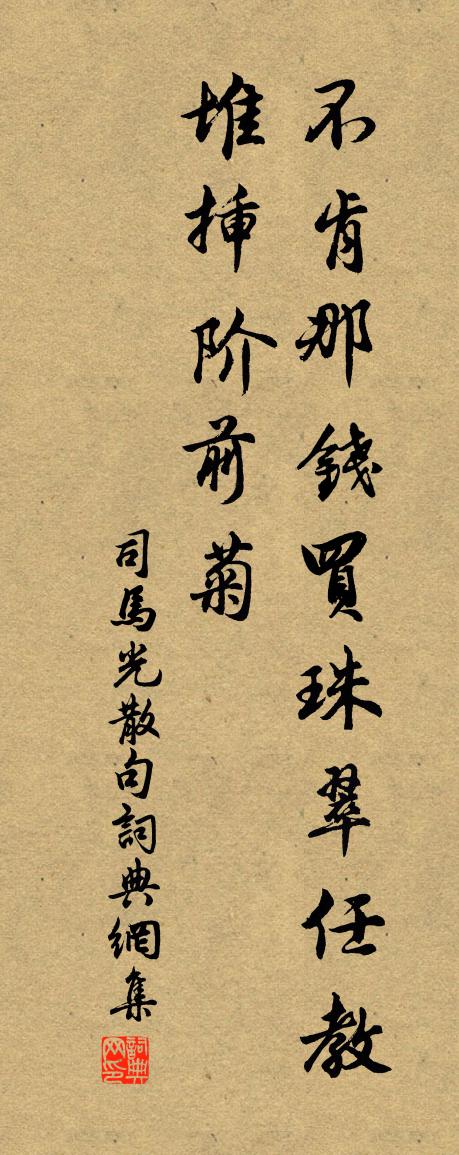 不肯那錢買珠翠任教
堆揷阶前菊
司馬光散句詞典網集
詞典网印